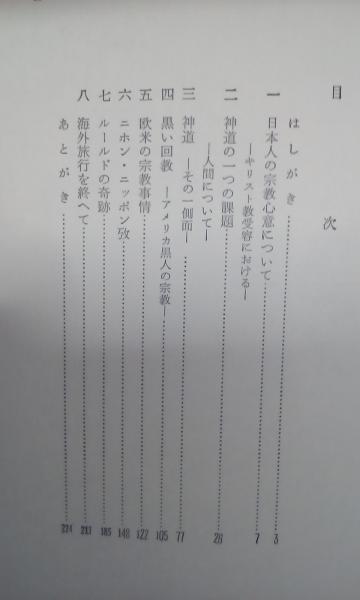 目次
はしがき……3
一 日本人の宗教心意について
―キリスト教受容における―……7
二 神道の一つの課題
―人間について―……26
三 神道 ―その一側面―……77
四 黒い回教 ―アメリカ黒人の宗教―……105
五 欧米の宗教事情……122
六 ニホン・ニッポン攷……148
七 ルールドの奇跡……185
八 海外旅行を終へて……213
あとがき……224